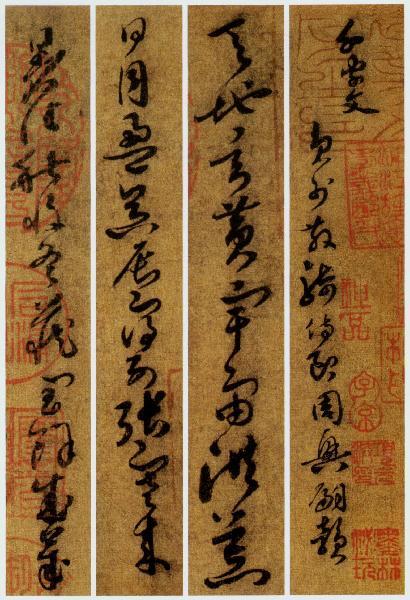 千字文
員外散騎侍郎周興嗣韻
天地玄黃宇宙洪荒
日月盈昃辰宿列張寒來
暑往秋收冬藏閏餘成歲
神品